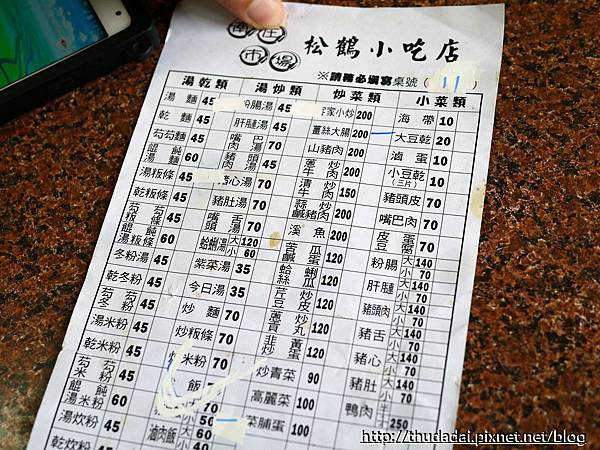 南庄
市場
松鶴小吃店
※請務必填寫桌號(11)
湯乾類
湯麵 45
乾麵 45
芶芶麵 45
餛飩湯麵 60
湯粄條 45
乾粄條 45
芶芶粄條 45
餛飩湯粄條 60
冬粉湯 45
乾冬粉 45
芶芶冬粉 45
湯米粉 45
乾米粉 45
芶芶米粉 45
餛飩湯米粉 60
湯炊粉 45
乾炊粉
湯炒類
粉腸湯 45
肝腱湯 45
嘴巴肉湯 70
豬頭肉湯 70
豬心湯 70
豬肚湯 70
嘴舌頭湯 70
蛤蜊湯 大 120 小 60
紫菜湯 35
今日湯 35
炒麵 70
炒粄條 70
炒米粉 70
飯 70
滷肉飯 大 50 小 40
炒菜類
客家小炒 200
薑絲大腸 200
山豬肉 200
炒肉 200
炒肉 150
鹹豬肉 200
溪魚 200
苦瓜鹹蛋 120
蛤蜊絲瓜 120
120
120
韭黃炒蛋 120
炒青菜 90
高麗菜 100
菜脯蛋 100
小菜類
海帶 10
大豆乾 20
滷蛋 10
小豆乾(三片) 10
豬頭皮 70
嘴巴肉 70
70
粉腸 大 140 小 70
肝腱 大 140 小 70
豬頭肉 大 140 小 70
豬舌 大 140 小 70
豬心 大 140 小 70
豬肚 大 140 小 70
鴨肉 250
http://thudadai.pixnet.net/blog